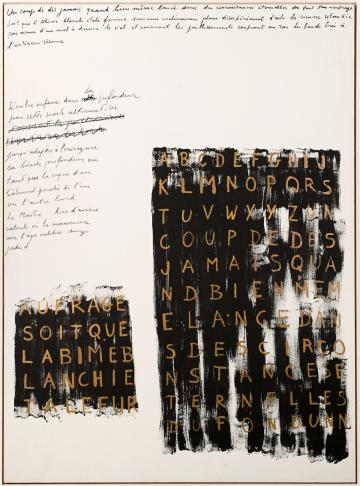 Un coup de dés jamais quand bien même lancé dans des circonstances éternelles du fond d'un naufrage
Soit que l'Abîme blanchi étale furieux sous une inclinaison plane désespérément d'aile la sienne retombée
par avance d'un mal à dresser le vol et couvrant les jaillissements coupant au ras les bonds très à
l'intérieur résume
l'ombre enfouie dans la profondeur
par cette voile alternative
jusqu'adapter à l'envergure
sa béante profondeur en
tant que la coque d'un
bâtiment penché de l'un
ou l'autre bord
Le Maître hors d'anciens
calculs où la manoeuvre
avec l'âge oubliée surgi
jadis
ABCDEFGHIJ
KLMNOPQRS
TUVWXYZUN
COUPDEDES
JAMAISQUA
NDBIENMEM
ELANCEDAN
SDESCIRCO
NSTANCESE
TERNELLES
DUFONDUNN
AUFRAGE
SOITQUE
LABIMEB
LANCHIE
TALEFUR